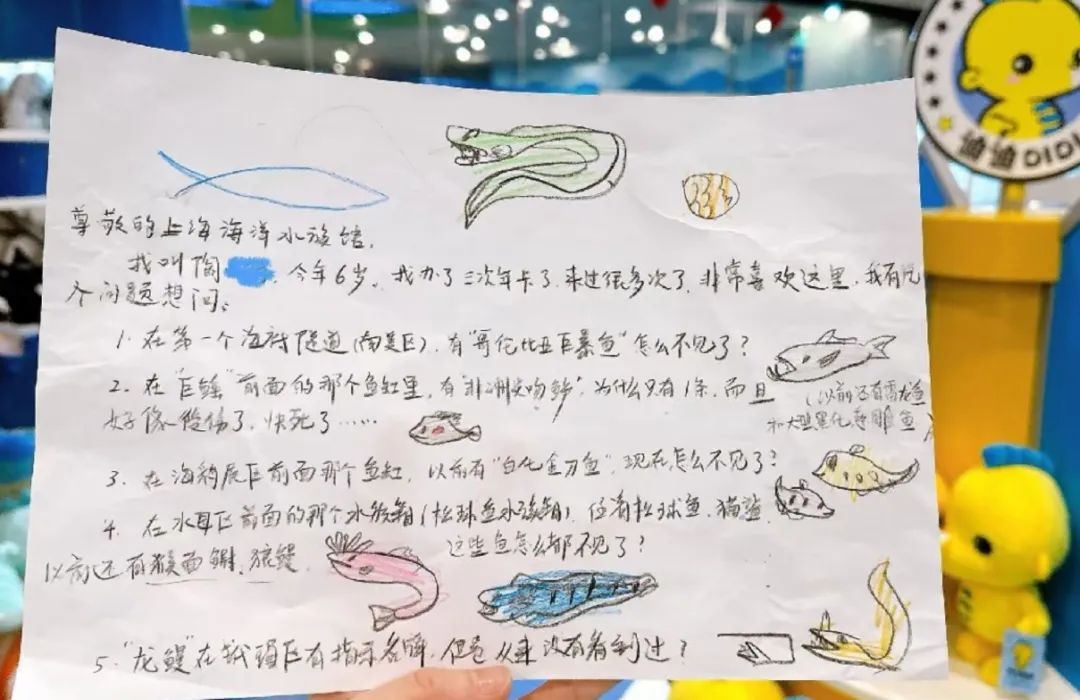 尊敬的上海海洋水族馆，
我叫陶 今年6岁。我办了三次年卡了，来过很多次了，非常喜欢这里，我有几
个问题想问：
1. 在第一个海底隧道(南美区)，有“哥伦比亚巨暴鱼”怎么不见了？
2. 在“巨骨”前面的那个鱼缸里，有“非洲尖吻鲈”为什么只有1条，而且
(以前还有雷龙鱼
好像受伤了，快死了……
和大型黑化 雕鱼)
3. 在海豹展区前面那个鱼缸，以前有“白化金刀鱼”，现在怎么不见了？
4. 在水母区前面的那个水族箱(松球鱼水族箱)，仅有松球鱼，猫鲨
以前还有猴面鳚、狼鳗
这些鱼怎么都不见了？
5. “龙鳗”在珊瑚区有指示名牌，但是从来没有看到过？
迪迪DIDI